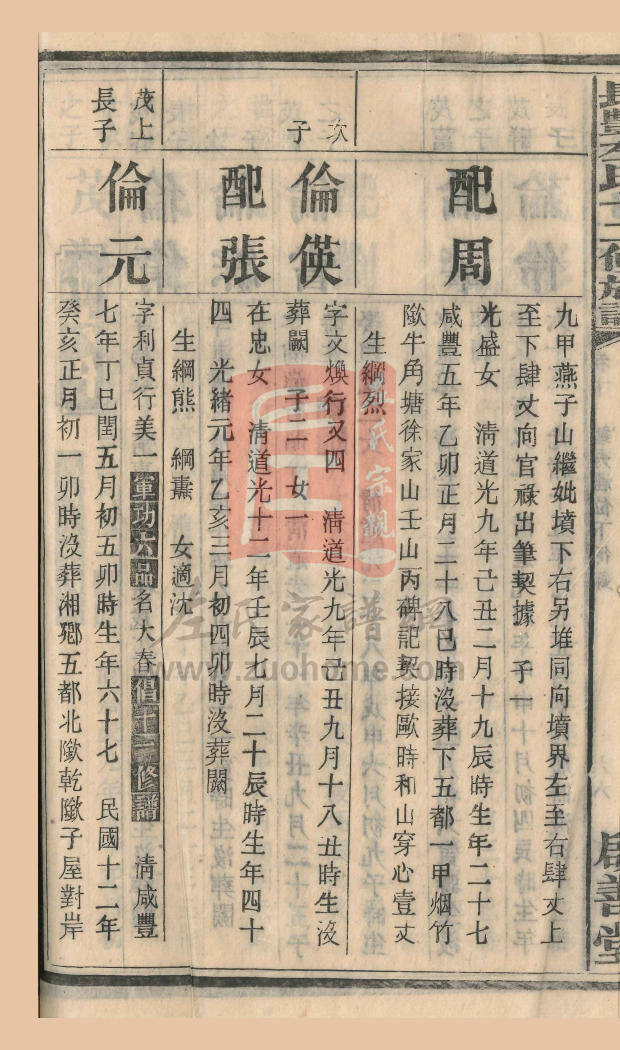 九甲燕子山繼妣墳下右另堆同向墳界左至右肆丈上
至下肆丈向官祿出筆契據 子一
配周
光盛女 清道光九年己丑二月十九辰時生年二十七
咸豐五年乙卯正月二十八巳時沒葬下五都一甲烟竹
隞牛角塘徐家山壬山丙碑記契接歐時和山穿心壹丈
生綱烈
次子
倫偀
字文煥行又四 清道光九年己丑九月十八丑時生沒
葬闕 子二 女一
配張
在忠女 清道光十二年壬辰七月二十辰時生年四十
四 光緒元年乙亥三月初四卯時沒葬闕
生綱熊 綱熏 女適沈
茂上長子
倫元
字利貞行美一軍功六品名大春倡十一修譜 清咸豐
七年丁巳閏五月初五卯時生年六十七 民國十二年
癸亥正月初一卯時沒葬湘鄉五都北隞乾隞子屋對岸
啟善堂
左氏家譜網
www.zuohome.com